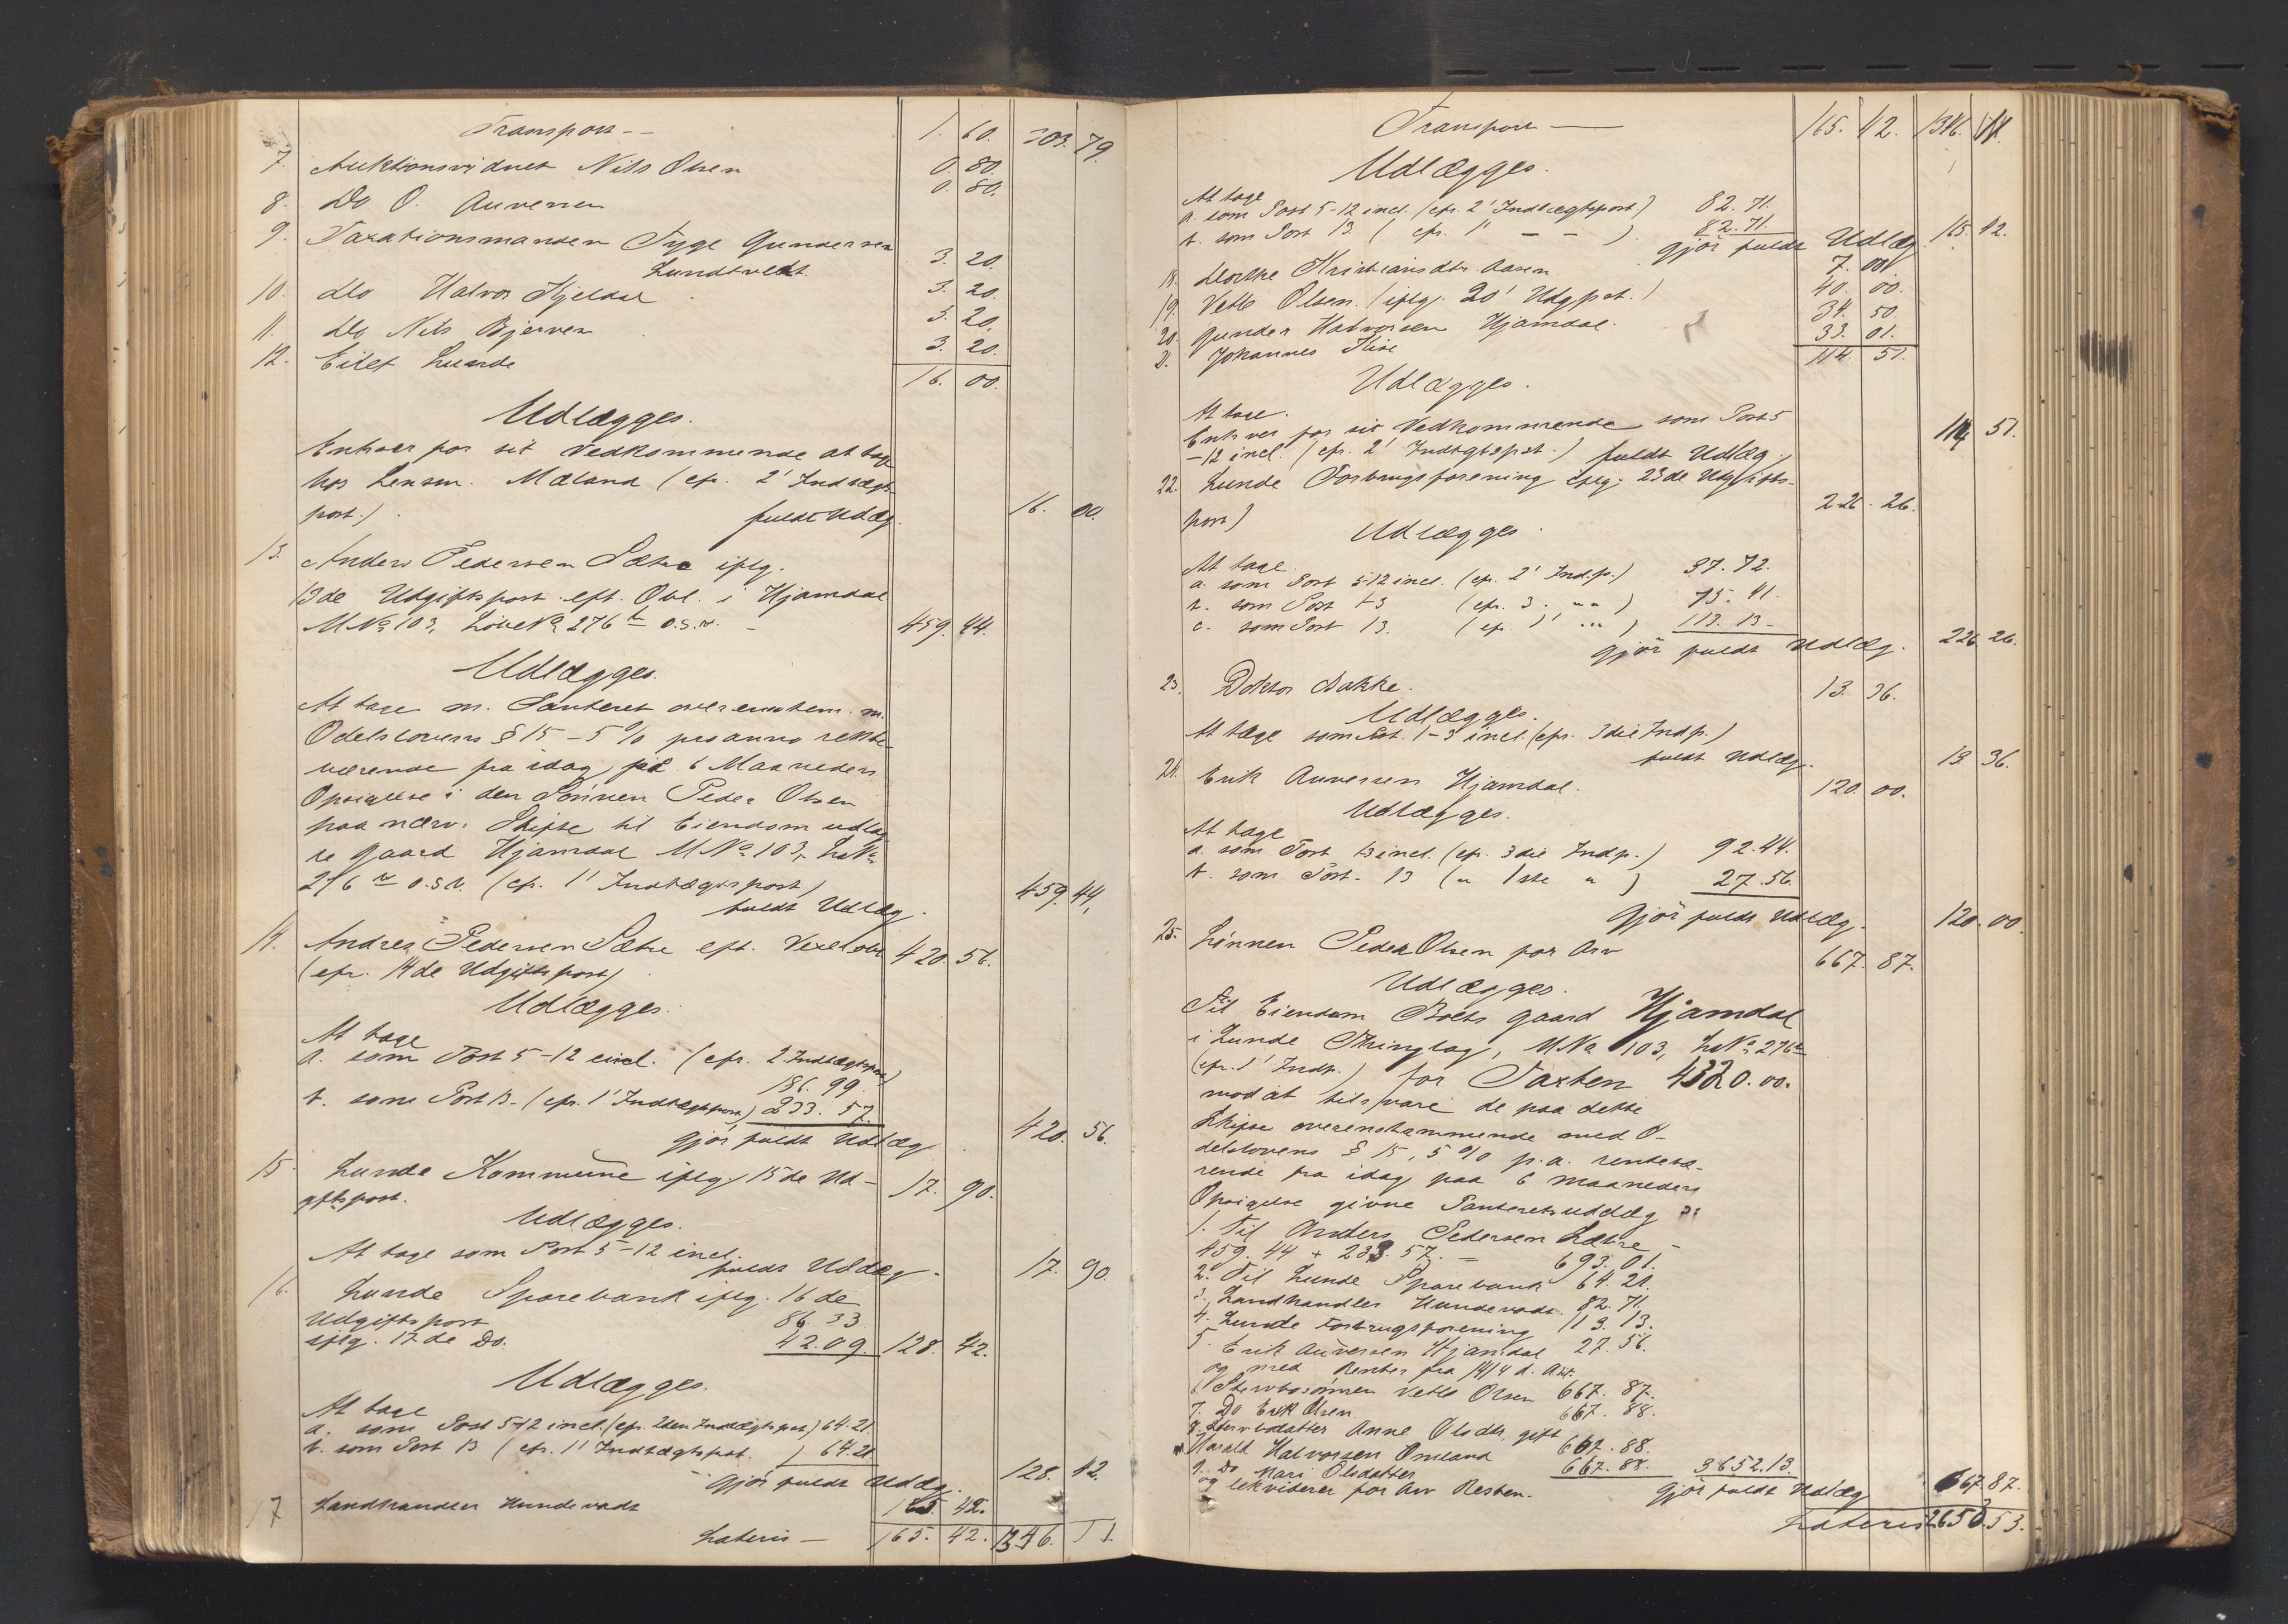 Transport – – 1. 60. 303. 79.
7. Auktionsvidnet Nils Olsen 0. 80.
8. Do O. Auversen 0. 80.
9. Taxationsmanden Tyge Gundersen
Lundtvedt 3. 20.
10. do Halvor Kjeldal 3. 20.
11. do Nils Bjerven 3. 20.
12. Eilef Lunde 3. 20.
16. 00.
Udlægges.
Enhver for sit Vedkommende at tage
hos Lensm. Mæland (cfr. 2' Indtægts-
post.) fuldt Udlæg. 16. 00.
13. Anders Pedersen Sætre iflg.
13de Udgiftspost eft. Obl. i Hjamdal
M No 103, Løbe No 276 o.s.v. – 459. 44.
Udlægges.
At tage m. Panteret overensstem. m.
Odelslovens § 15 – 5 % pro anno rente-
værende fra idag på 6 Maaneders
Opsigelse i den Sønnen Peder Olsen
paa nærv. Skifte til Eiendom udlag-
te Gaard Hjamdal M No 103, L No
276 o.s.v. (cfr. 1' Indtægtspost)
fuldt Udlæg. 459. 44.
14. Andres Pedersen Sætre eft. Vexelobl. 420. 56.
(cfr. 14de Udgiftspost)
Udlægges.
At tage
a. som Post 5–12 incl. (cfr. 2 Indtægtspost)
186. 99.
b. som Post 13 – (cfr. 1' Indtægtspost) 233. 57.
gjør fuldt Udlæg 420. 56.
15. Lunde Kommune iflg. 15de Ud- 17. 90.
giftspost.
Udlægges.
At tage som Post 5–12 incl.
fuldt Udlæg – 17. 90.
16. Lunde Sparebank iflg. 16de
Udgiftspost 86. 33.
iflg. 17de Do. 42. 09. 128. 42.
Udlægges.
At tage
a. som Post 5–12 incl. (cfr. 2den Indtægtspost) 64. 21.
b. som Post 13 (cfr. 1' Indtægtspost ) 64. 21.
gjør fuldt Udlæg. 128. 42.
17 Landhandler Hundevadt 165. 42.
Lateris – 165. 42. 1346. 51.
Transport — 165. 42. 1346. 51.
Udlægges.
At tage
a. som Post 5–12 incl. (cfr. 2' Indtægtspost) 82. 71.
b. som Post 13. ( cfr. 1' – – ) 82. 71.
gjør fuldt Udlæg 165. 42.
18. Dorthe Kristiansdtr. Aasen 7. 00.
19. Vetle Olsen (iflg. 20' Udgpst.) 40. 00.
20. Gunder Halvorsen Hjamdal. 34. 50.
21. Johannes Kise 33. 01.
114. 51.
Udlægges.
At tage.
Enhver for sit Vedkommende som Post 5
–12 incl. (cfr. 2' Indtgtspst.) fuldt Udlæg. 114. 51.
22. Lunde Forbrugsforening iflg. 23de Udgifts-
post) 226. 26.
Udlægges.
At tage
a. som Post 5-12 incl. (cfr. 2' Ind.p.) 37. 72.
b. som Post 1-3 (cfr. 3. " " ) 75. 41.
c. som Post 13. (cfr. 1' " " ) 113. 13 –
gjør fuldt Udlæg. 226. 26.
23. Doktor Bakke. 13. 36.
Udlægges.
At tage som Post. 1–3 incl. (cfr. 3die Indp.)
fuldt Udlæg. 13 36.
24. Erik Auversen Hjamdal. 120. 00.
Udlægges.
At tage
a. som Post 1-3 incl. (cfr. 3die Indp.) 92. 44.
b. som Post – 13 ( " 1ste " ) 27. 56.
gjør fuldt Udlæg. 120. 00
25. Sønnen Peder Olsen for Arv 667. 87.
Udlægges.
Til Eiendom Boets Gaard Hjamdal
i Lunde Thinglag, M No 103, L No 276
(cfr. 1' Indp.) for Taxten 4320. 00.
mod at tilsvare de paa dette
Skifte overensstemmende med O-
delslovens § 15, 5 % p.a. rentebæ-
rende fra idag paa 6 Maaneders
Opsigelse givne Panteretsudlæg
1. til Anders Pedersen Sætre –
459. 44 + 233. 57. = 693. 01.
2. Til Lunde Sparebank 64. 21.
3. Landhandler Hundevadt. 82. 71.
4. Lunde Forbrugsforening 113. 13.
5. Erik Auversen Hjamdal 27. 56.
og med Renter fra 14/4 d. A.
6. Stervbosønnen Vetle Olsen 667. 87.
7. Do Erik Olsen 667. 88.
8. Stervbodatter Anne Olsdtr. gift
m Harald Halvorsen Omland 667. 88.
9. Do Mari Olsdatter 667. 88. 3652. 13.
og lekviderer for Arv Resten. gjør fuldt Udlæg 667. 87.
Lateris 2653. 53.